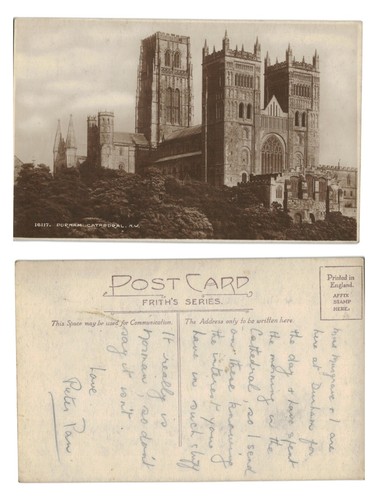 16117. DURHAM CATHEDRAL, N.W.
POST CARD
FRITH'S SERIES.
This Space may be used for Communication.
The Address only to be written here.
Printed in
England.
AFFIX
STAMP
HERE.
Miss Musgrave & I are
here at Durham for
the day & have spent
the morning in the
Cathedral, so I send
one there knowing
the interest you
have in such stuff
It really is
Norman, so don't
say it isn't.
Love
Peter Pan